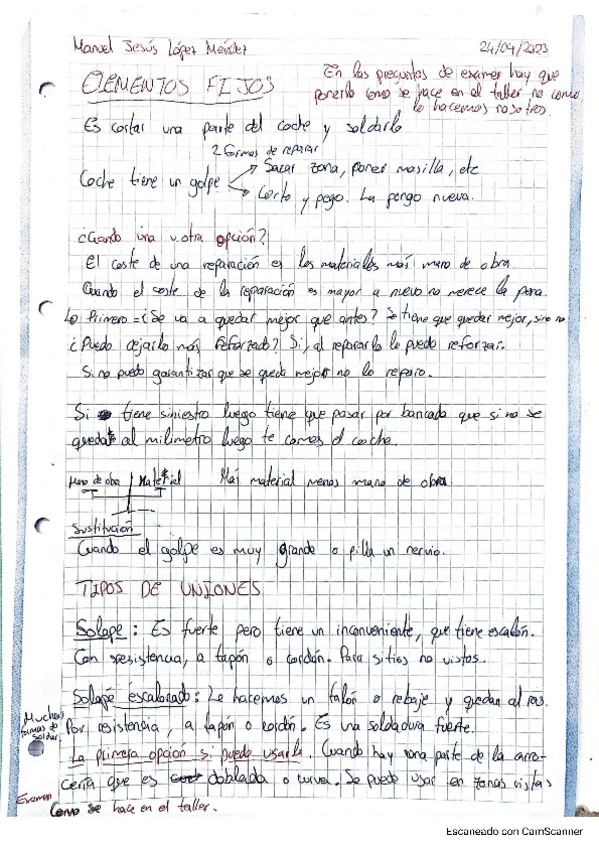 Manuel Jesús López Méndez 24/04/2023
ELEMENTOS FIJOS
En las preguntas de examen hay que
ponerlo como se hace en el taller no como
lo hacemos nosotros.
Es cortar una parte del coche y soldarlo
2 formas de reparar
Coche tiene un golpe
Sacar zona, poner masilla, etc
Corto y pego. La pongo nueva.
¿Cuando una u otra opción?
El coste de una reparación es los materiales más mano de obra
Cuando el coste de la reparación es mayor a nuevo no merece la pena.
Lo Primero = ¿Se va a quedar mejor que antes? Se tiene que quedar mejor, sino no
¿Puedo dejarlo más reforzado? Si, al repararlo lo puedo reforzar.
Si no puedo garantizar que se quede mejor no lo reparo.
Si tiene siniestro luego tiene que pasar por bancada que si no se
queda al milimetro luego te comes el coche.
Mano de obra Material Más material menos mano de obra
Sustitución
Cuando el golpe es muy grande o pilla un nervio.
TIPOS DE UNIONES
Solape: Es fuerte pero tiene un inconveniente, que tiene escalón.
Con resistencia, a tapón o cordón. Para sitios no vistos.
Solape escalonado: Le hacemos un talón o rebaje y quedan al ras.
Muchas
formas de
soldar
Por resistencia, a tapón o cordón. Es una soldadura fuerte.
La primera opcion si puedo usarla. Cuando hay una parte de la arro-
cería que es doblada o curva. Se puede usar en zonas vistas
Examen
Como se hace en el taller.
Escaneado con CamScanner